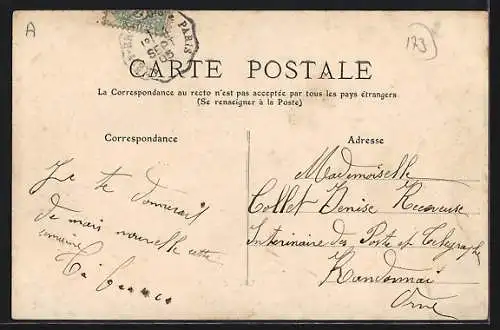 A
173
PARIS
SEPT
05
CARTE POSTALE
La Correspondance au recto n'est pas acceptée par tous les pays étrangers
(Se renseigner à la Poste)
Correspondance
Je te donnerais
de mais nouvelle cette
semaine
Adresse
Mademoiselle
Collet Denise Receveuse
Interimaire des Poste et Telegraphe
Randonnai
Orne